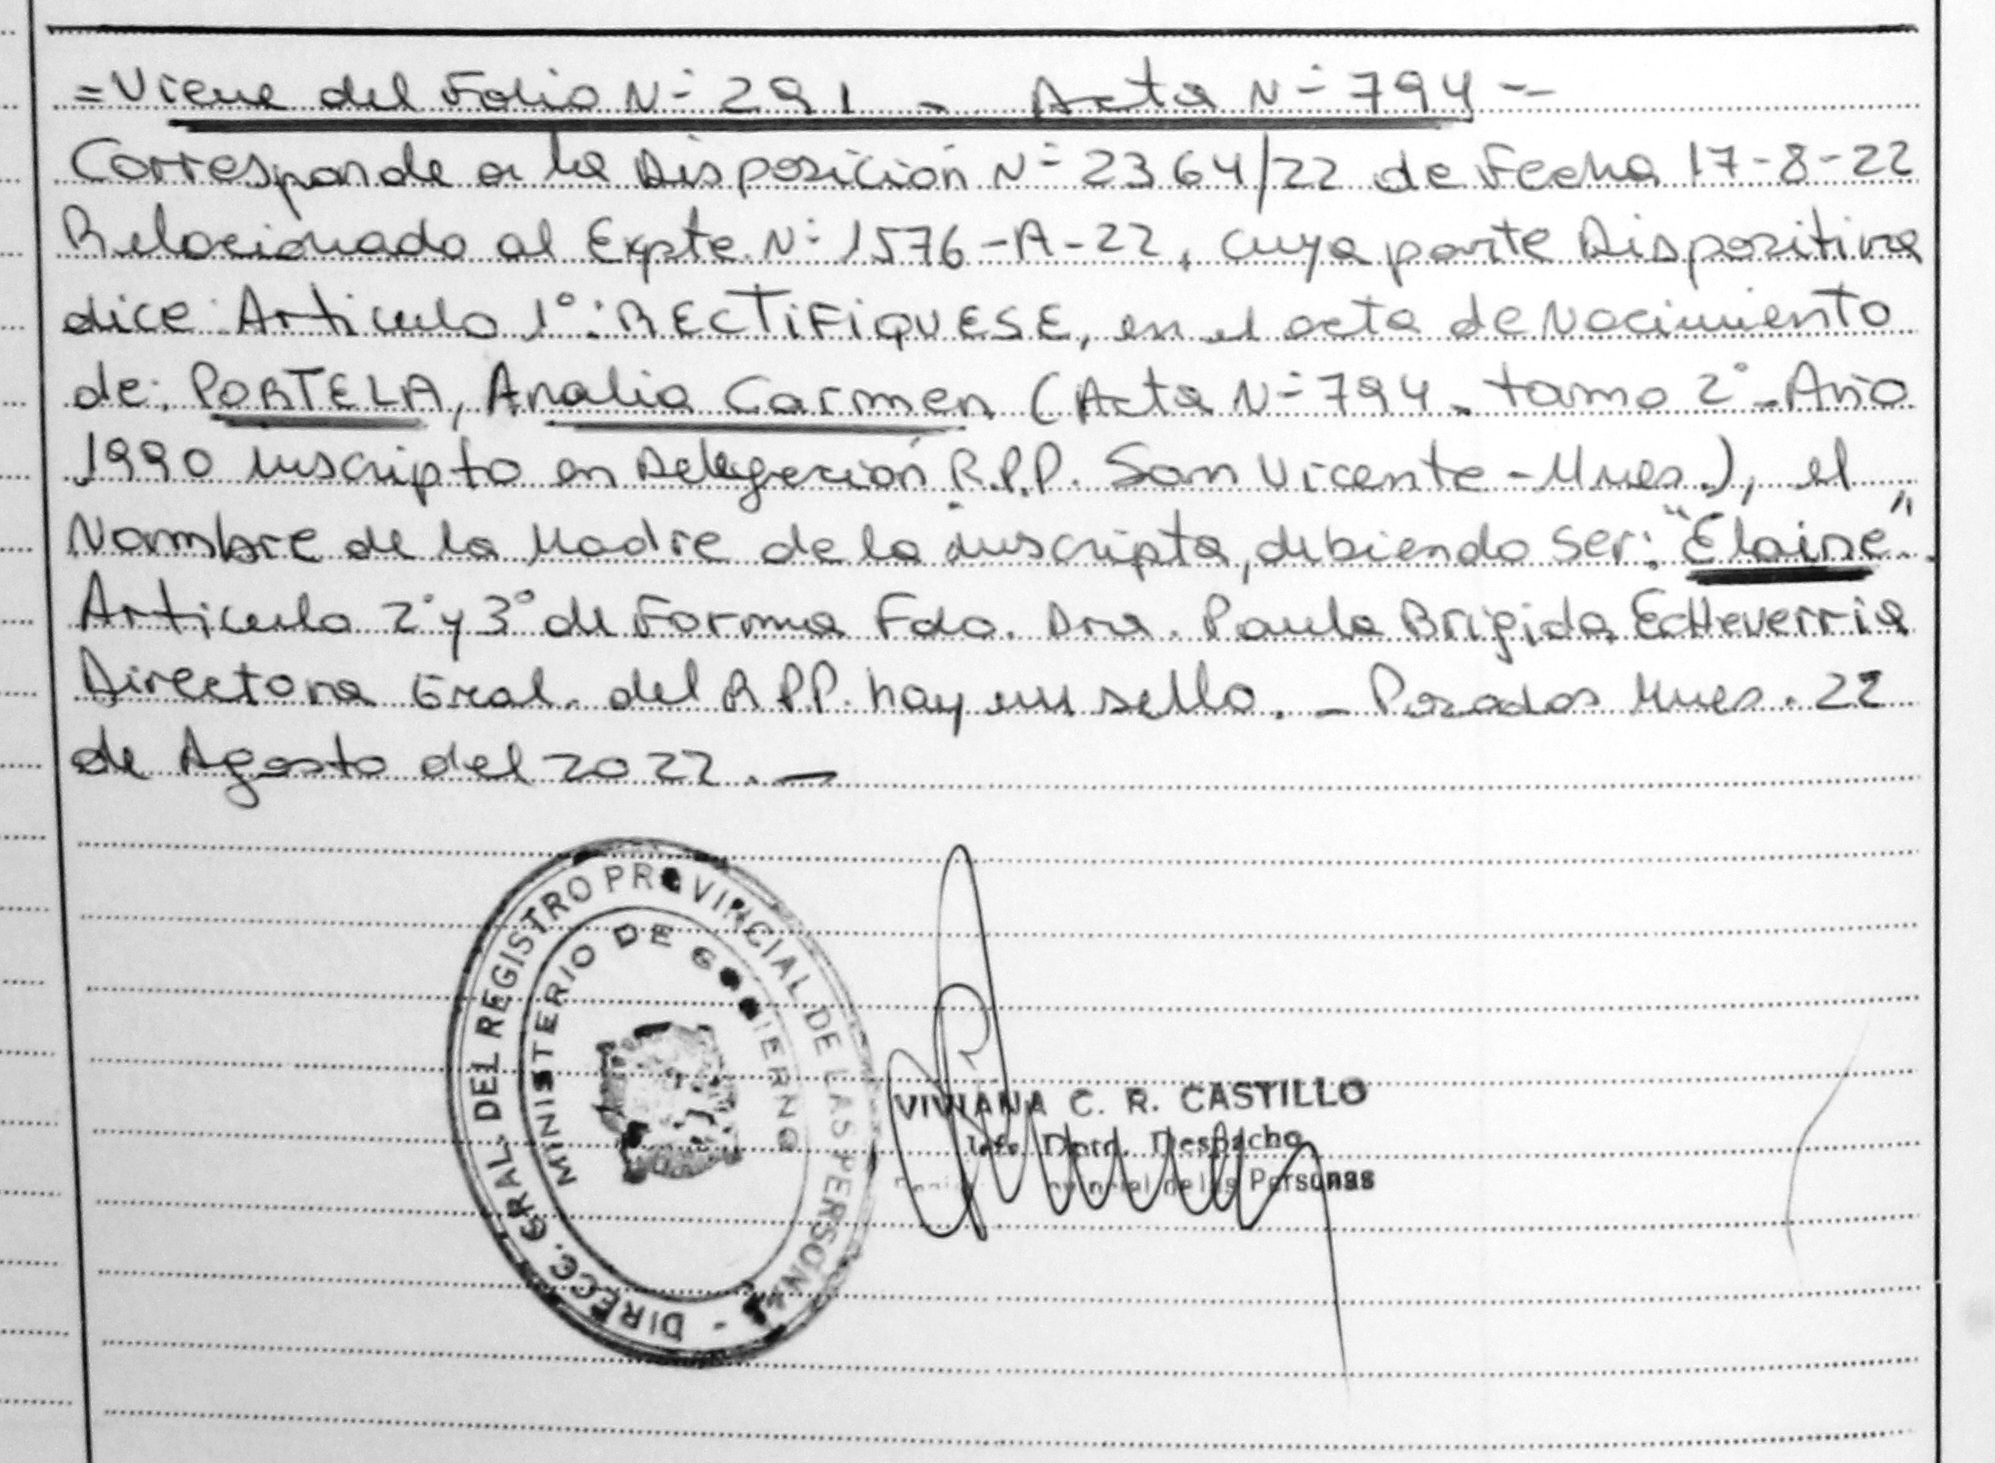 =Viene del Folio N- 291 - Acta N- 794 --
Corresponde a la Disposición N- 2364/22 de Fecha 17-8-22
Relacionado al Expte. N- 1576-A-22, cuya parte Dispositiva
dice: Articulo 1°: RECTIFIQUESE, en el acta de Nacimiento
de: PORTELA, Analia Carmen (Acta N- 794 - tomo 2° - Año
1990 inscripto en Delegación R.P.P. San Vicente - Mnes.), el
Nombre de la Madre de la inscripta, debiendo ser: "Elaine".
Articulo 2° y 3° de Forma Fdo. Dra. Paula Brigida Echeverria
Directora Gral. del R.P.P. hay un sello. - Posadas Mnes. 22
de Agosto del 2022. -
DIRECC. GRAL. DEL REGISTRO PROVINCIAL DE LAS PERSONAS -
MINISTERIO DE GOBIERNO
VIVIANA C. R. CASTILLO
Jefe Dpto. Despacho
Provincial de las Personas